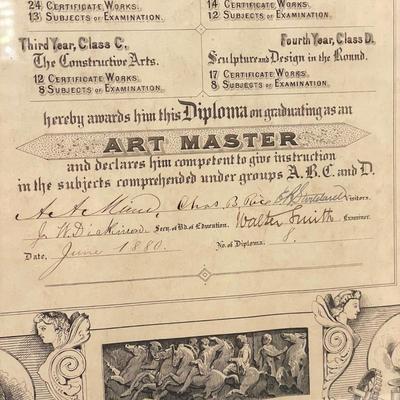 24 Certificate Works.
13 Subjects of Examination.
14 Certificate Works.
12 Subjects of Examination.
Third Year, Class C.
The Constructive Arts.
12 Certificate Works.
8 Subjects of Examination.
Fourth Year, Class D.
Sculpture and Design in the Round.
17 Certificate Works.
8 Subjects of Examination.
hereby awards him this Diploma on graduating as an
ART MASTER
and declares him competent to give instruction
in the subjects comprehended under groups A. B. C. and D.
Chas. B. Visitors.
J. W. Dickinson Secy. of Bd. of Education. Walter Smith Examiner.
Date, June 1880. No. of Diploma